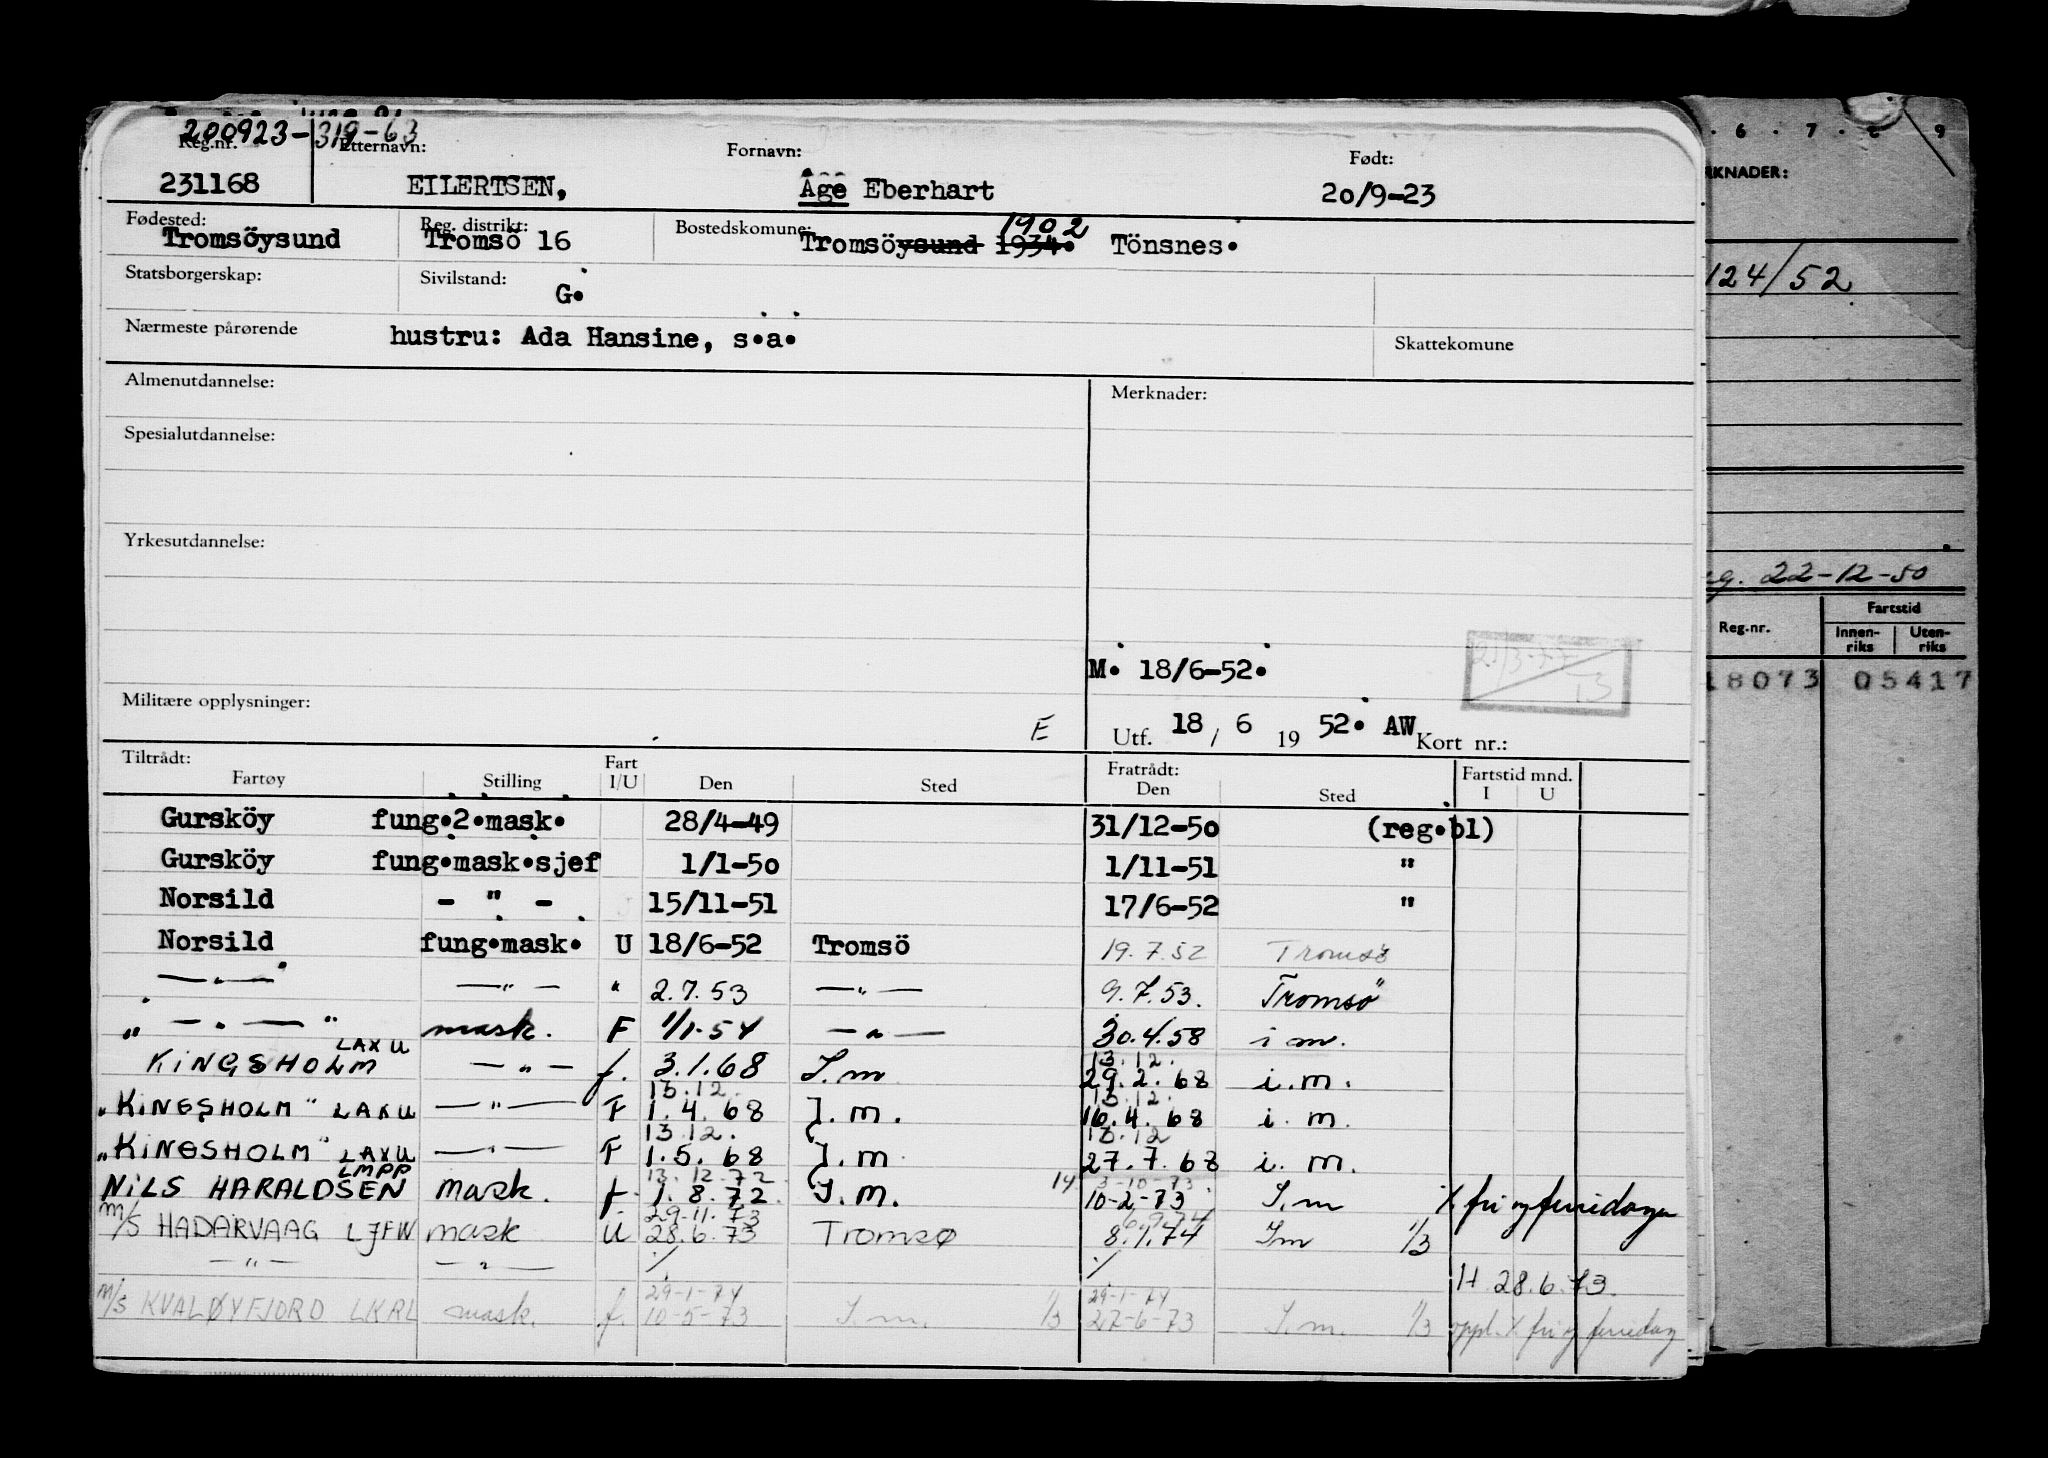 200923-319-63
Reg.nr. Etternavn: Fornavn: Født:
231168 EILERTSEN, Åge Eberhart 20/9-23
Fødested: Reg. distrikt: Bostedskomune: 1902
Tromsöysund Tromsö 16 Tromsöysund 1934. Tönsnes.
Statsborgerskap: Sivilstand: G.
Nærmeste pårørende hustru: Ada Hansine, s.a. Skattekomune
Almenutdannelse: Merknader:
Spesialutdannelse:
Yrkesutdannelse:
M. 18/6-52.
Militære opplysninger: E Utf. 18 / 6 19 52. AW Kort nr.:
Tiltrådt: Fart Fratrådt: Fartstid mnd.
Fartøy Stilling I/U Den Sted Den Sted I U
Gursköy fung.2.mask. 28/4-49 31/12-50 (reg.bl)
Gursköy fung.mask.sjef 1/1-50 1/11-51 "
Norsild - " - 15/11-51 17/6-52 "
Norsild fung.mask. U 18/6-52 Tromsö 19.7.52 Tromsö
—"— —"— " 2.7.53 —"— 9.7.53. Tromsö
" —"— " mask. F 1/1-54 —"— 30.4.58 i m.
LAXU 13.12.
KINGSHOLM —"— f. 3.1.68 I.m 29.2.68 i.m.
13.12. 13.12.
"KINGSHOLM" LAXU —"— F 1.4.68 I.m. 16.4.68 i.m.
13.12. 13.12
"KINGSHOLM" LAXU —"— F 1.5.68 I.m 27.7.68 i.m.
LMPP 13.12.72 3-10-73.
NILS HARALDSEN mask. f. 1.8.72. I.m. 14 10-2-73 I.m X fri og feriedager
29-11.73
M/S HADARVAAG LJFW mask U 28.6.73 Tromsø 8.1.74 Im 1/3
—"— —"— ./. ./. H 28.6.73.
29-1-74 29-1-74
M/S KVALØYFJORD LKRL mask. f. 10-5-73 I.m. 1/3 27-6-73 I.m. 1/3 oppl. X fri og feriedag
. 6 . 7 . 8 . 9
RKNADER:
124/52
eg. 22-12-50
Reg.nr. Fartstid
Innen-riks Uten-riks
18073 05417